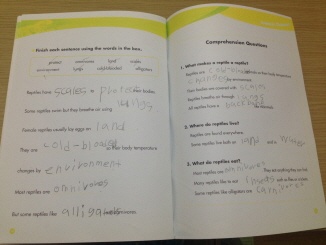 Finish each sentence using the words in the box.
protect omnivores land scales
environment lungs cold-blooded alligators
Reptiles have scales to protect their bodies.
Some reptiles swim but they breathe air using lungs
Female reptiles usually lay eggs on land
They are cold-blooded so their body temperature
changes by environment
Most reptiles are omnivores
But some reptiles like alligators are carnivores.
Comprehension Questions
1. What makes a reptile a reptile?
Reptiles are cold-blooded so their body temperature
changes by environment
Their bodies are covered with scales
Reptiles breathe air through lungs
All reptiles have a backbone
2. Where do reptiles live?
Reptiles are found everywhere.
Some reptiles live both on land and water
3. What do reptiles eat?
Most reptiles are omnivores They eat anything they can find.
Many reptiles like to eat insects
Some reptiles like alligators are carnivores